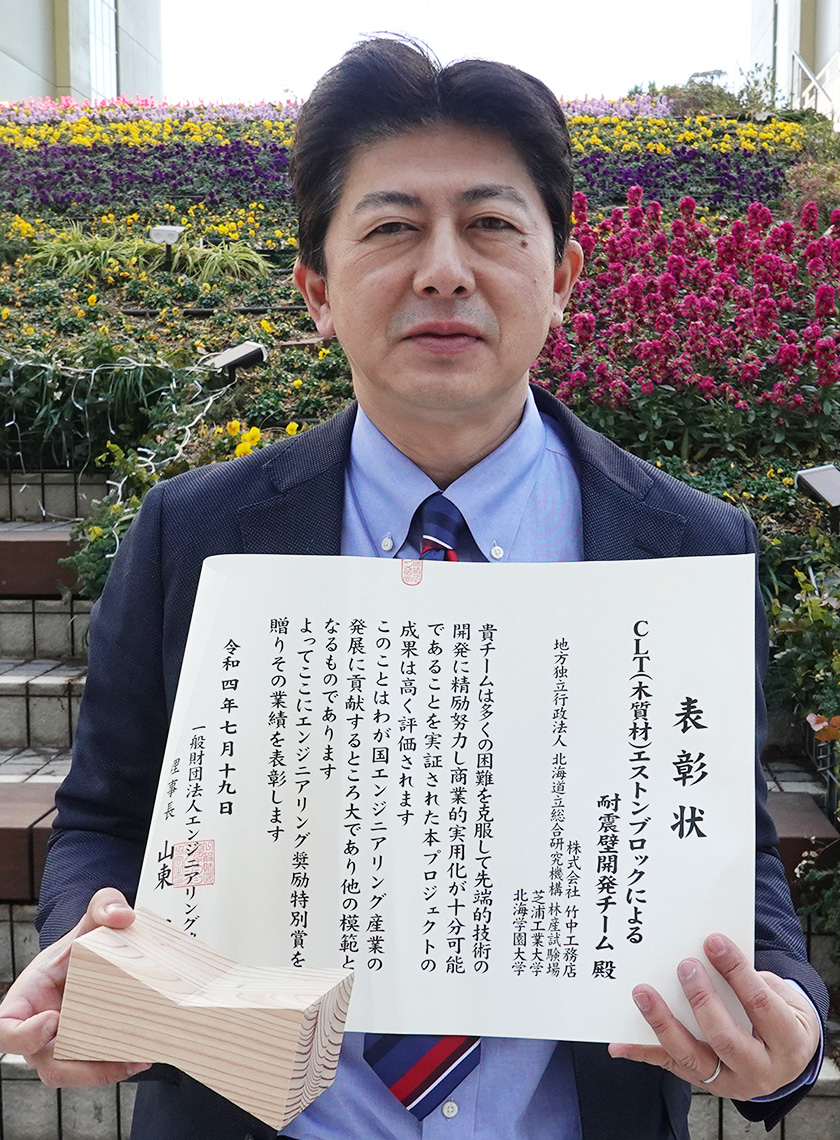 表彰状
CLT(木質材)エストンブロックによる
耐震壁開発チーム 殿
株式会社 竹中工務店
地方独立行政法人 北海道立総合研究機構 林産試験場
芝浦工業大学
北海学園大学
貴チームは多くの困難を克服して先端的技術の
開発に精励努力し商業的実用化が十分可能
であることを実証された本プロジェクトの
成果は高く評価されます
このことはわが国エンジニアリング産業の
発展に貢献するところ大であり他の模範と
なるものであります
よってここにエンジニアリング奨励特別賞を
贈りその業績を表彰します
令和四年七月十九日
一般財団法人エンジニアリング
理事長 山東